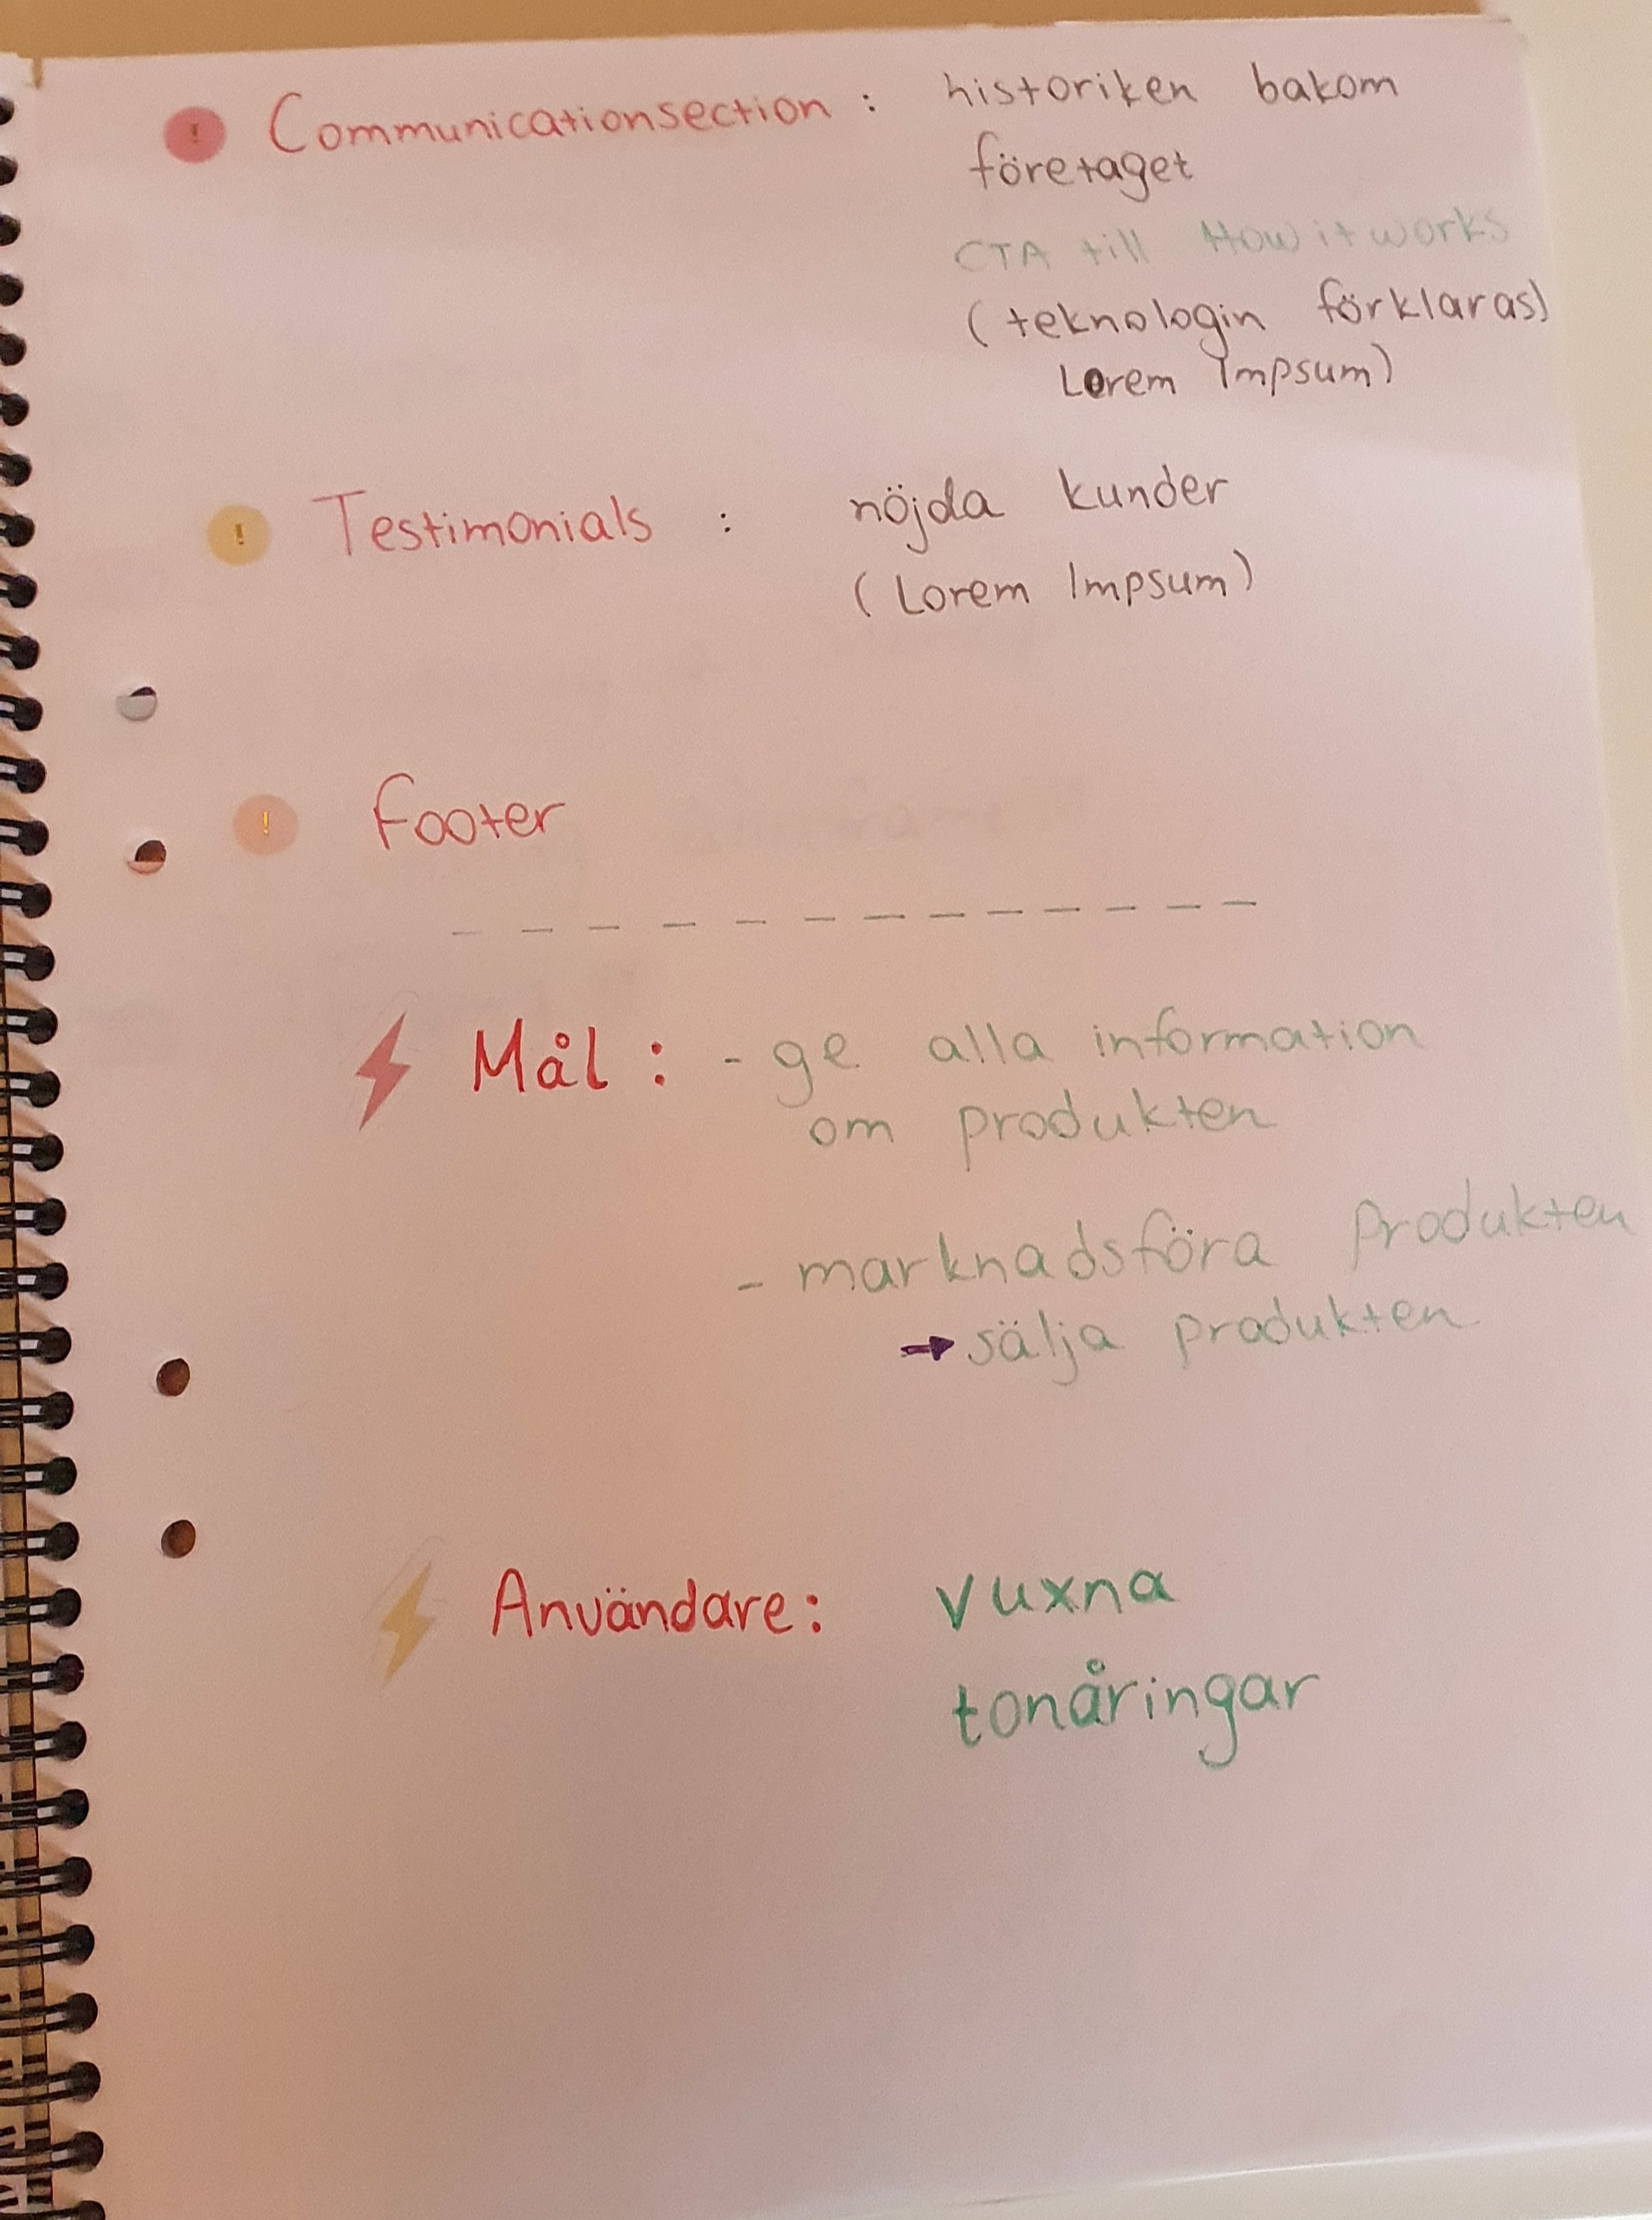 ! Communicationsection : historiken bakom
företaget
CTA till How it works
(teknologin förklaras)
Lorem Impsum)
! Testimonials : nöjda kunder
(Lorem Impsum)
! Footer
Mål : - ge alla information
om produkten
- marknadsföra produkten
→ sälja produkten
Användare: vuxna
tonåringar